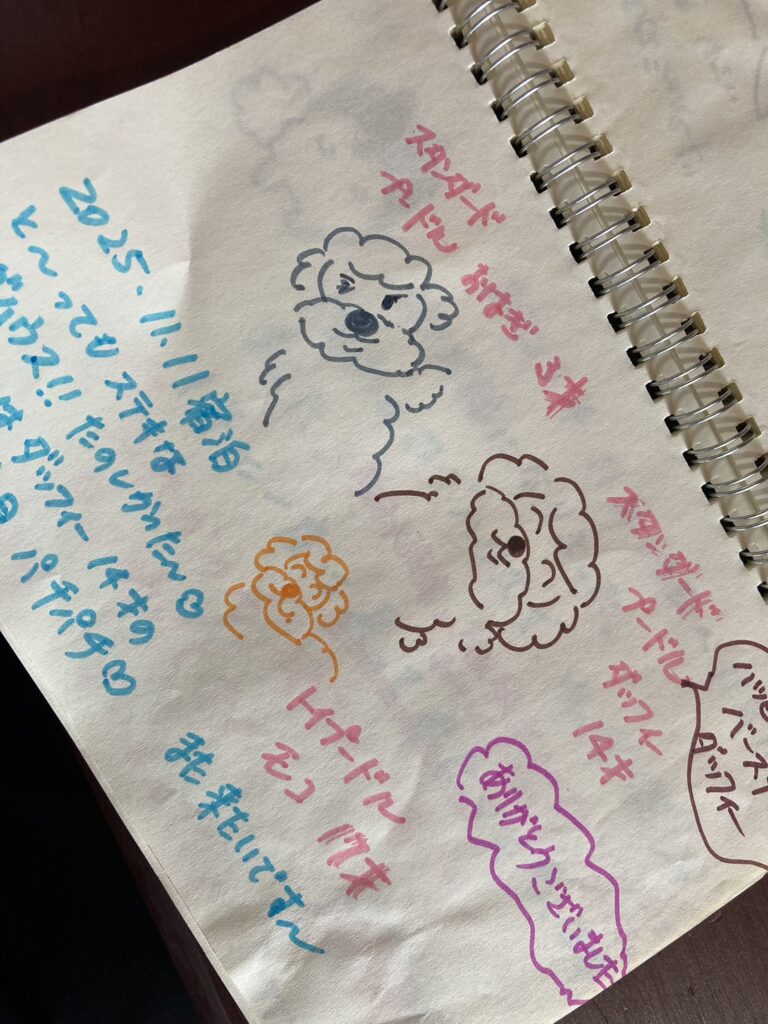 2025.11.11 宿泊
と〜ってもステキな
ハウス!! たのしかったん〜♡
ダッフィー 14才の
パチパチ♡
スタンダード
プードル おはぎ 3才
スタンダード
プードル
ダッフィー
14才
トイプードル
モコ 17才
また来たいです〜
ありがとうございました
ハッピ
バースデ
ダッフィー